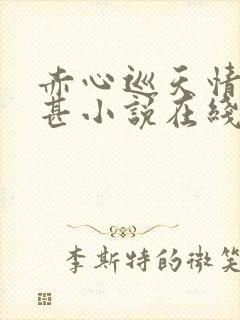 赤心巡天情
甚小說在綫
李斯特的微笑